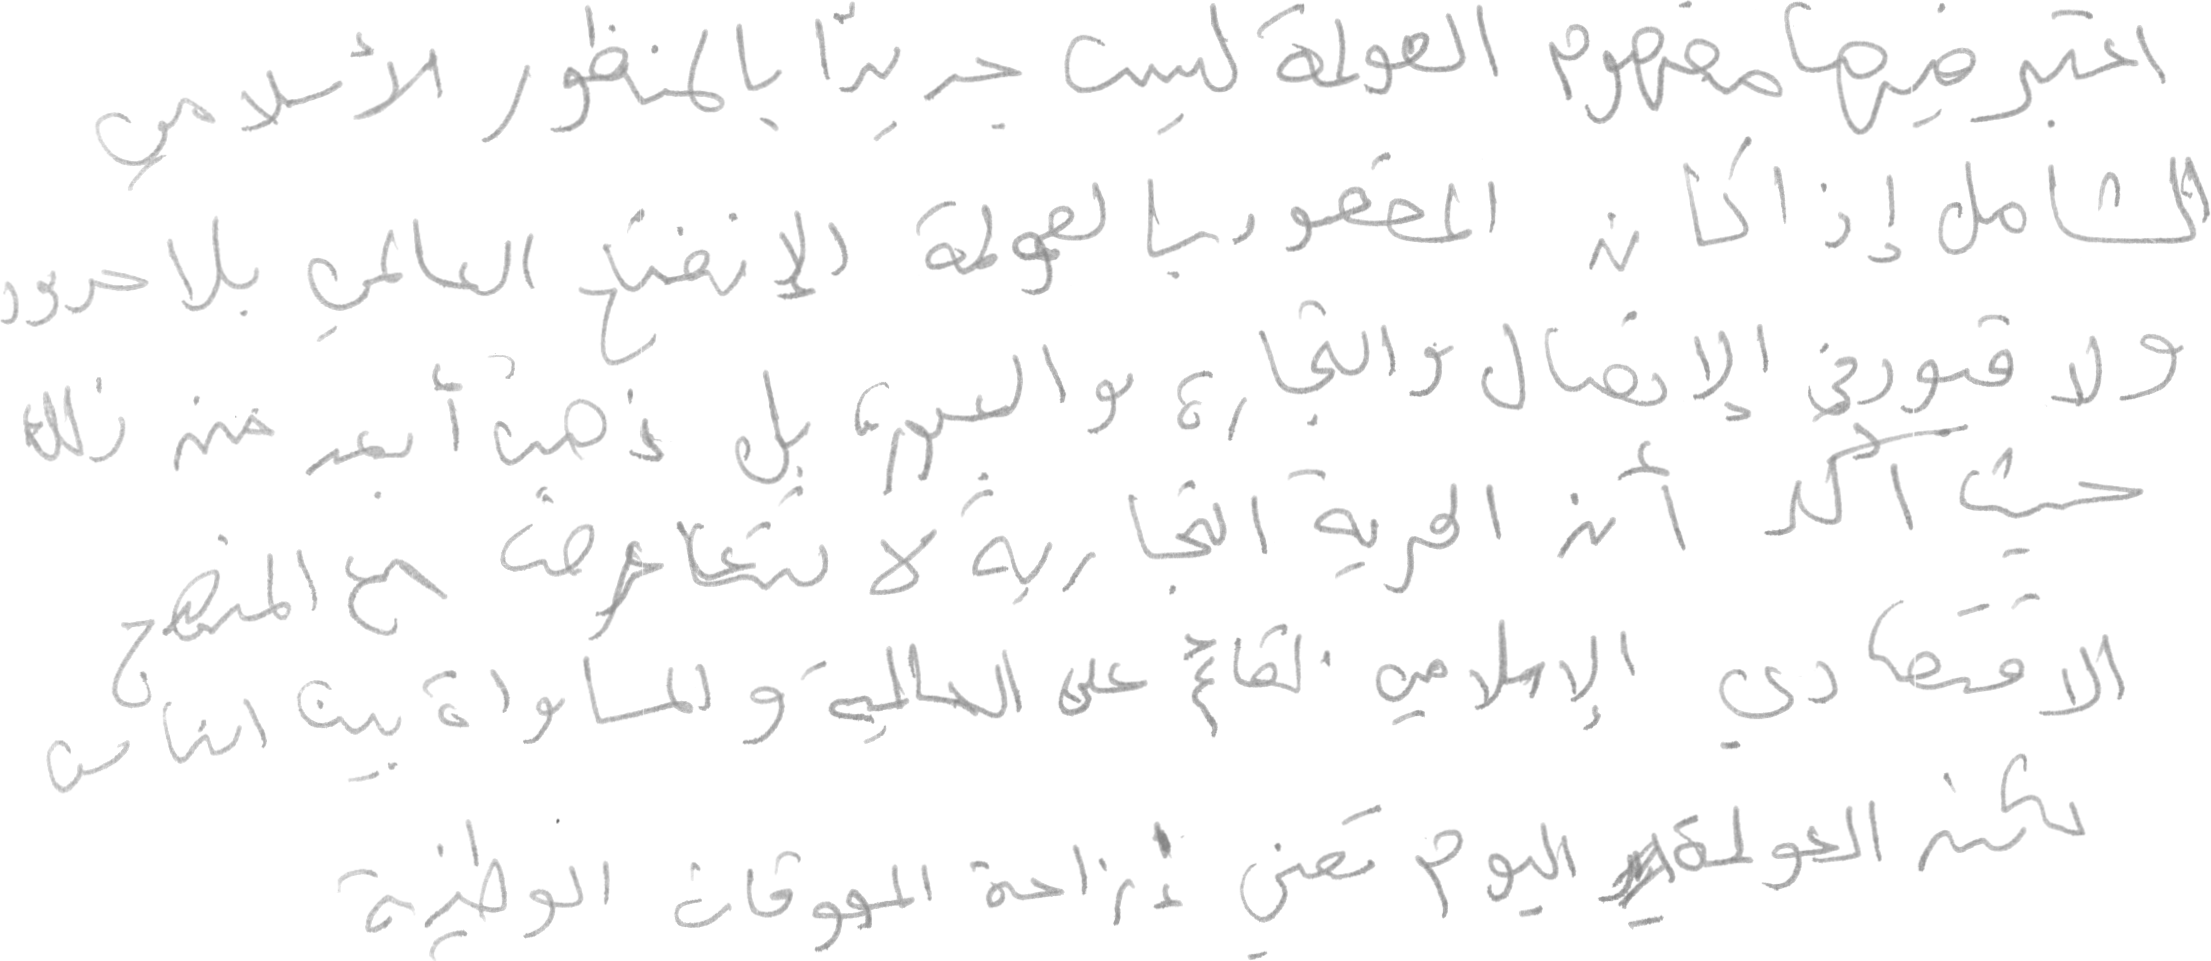 اعتبر فيها مفهوم العولمة ليست جديدًا بالمنظور الأسلامي
الشامل إذا كان المقصود بالعولمة الإنفتاح العالمي بلا حدود
ولا قيود في الإتصال والتجارة والعبور بل ذهب أبعد من ذلك
حيث أكد أن الحرية التجارية لا تتعارض مع المنهج
الاقتصادي الإسلامي القائم على العالمية والمساواة بين الناس
لكن العولمة اليوم تعني إزاحة المعوقات الوطنية